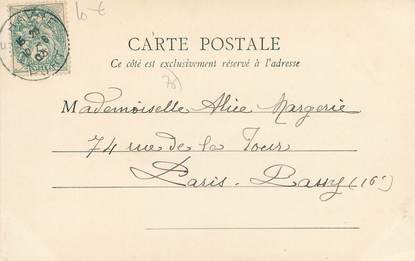 10 €
CARTE POSTALE
Ce côté est exclusivement réservé à l'adresse
Mademoiselle Alice Margerie
74 rue de la Tour
Paris-Passy (16e)